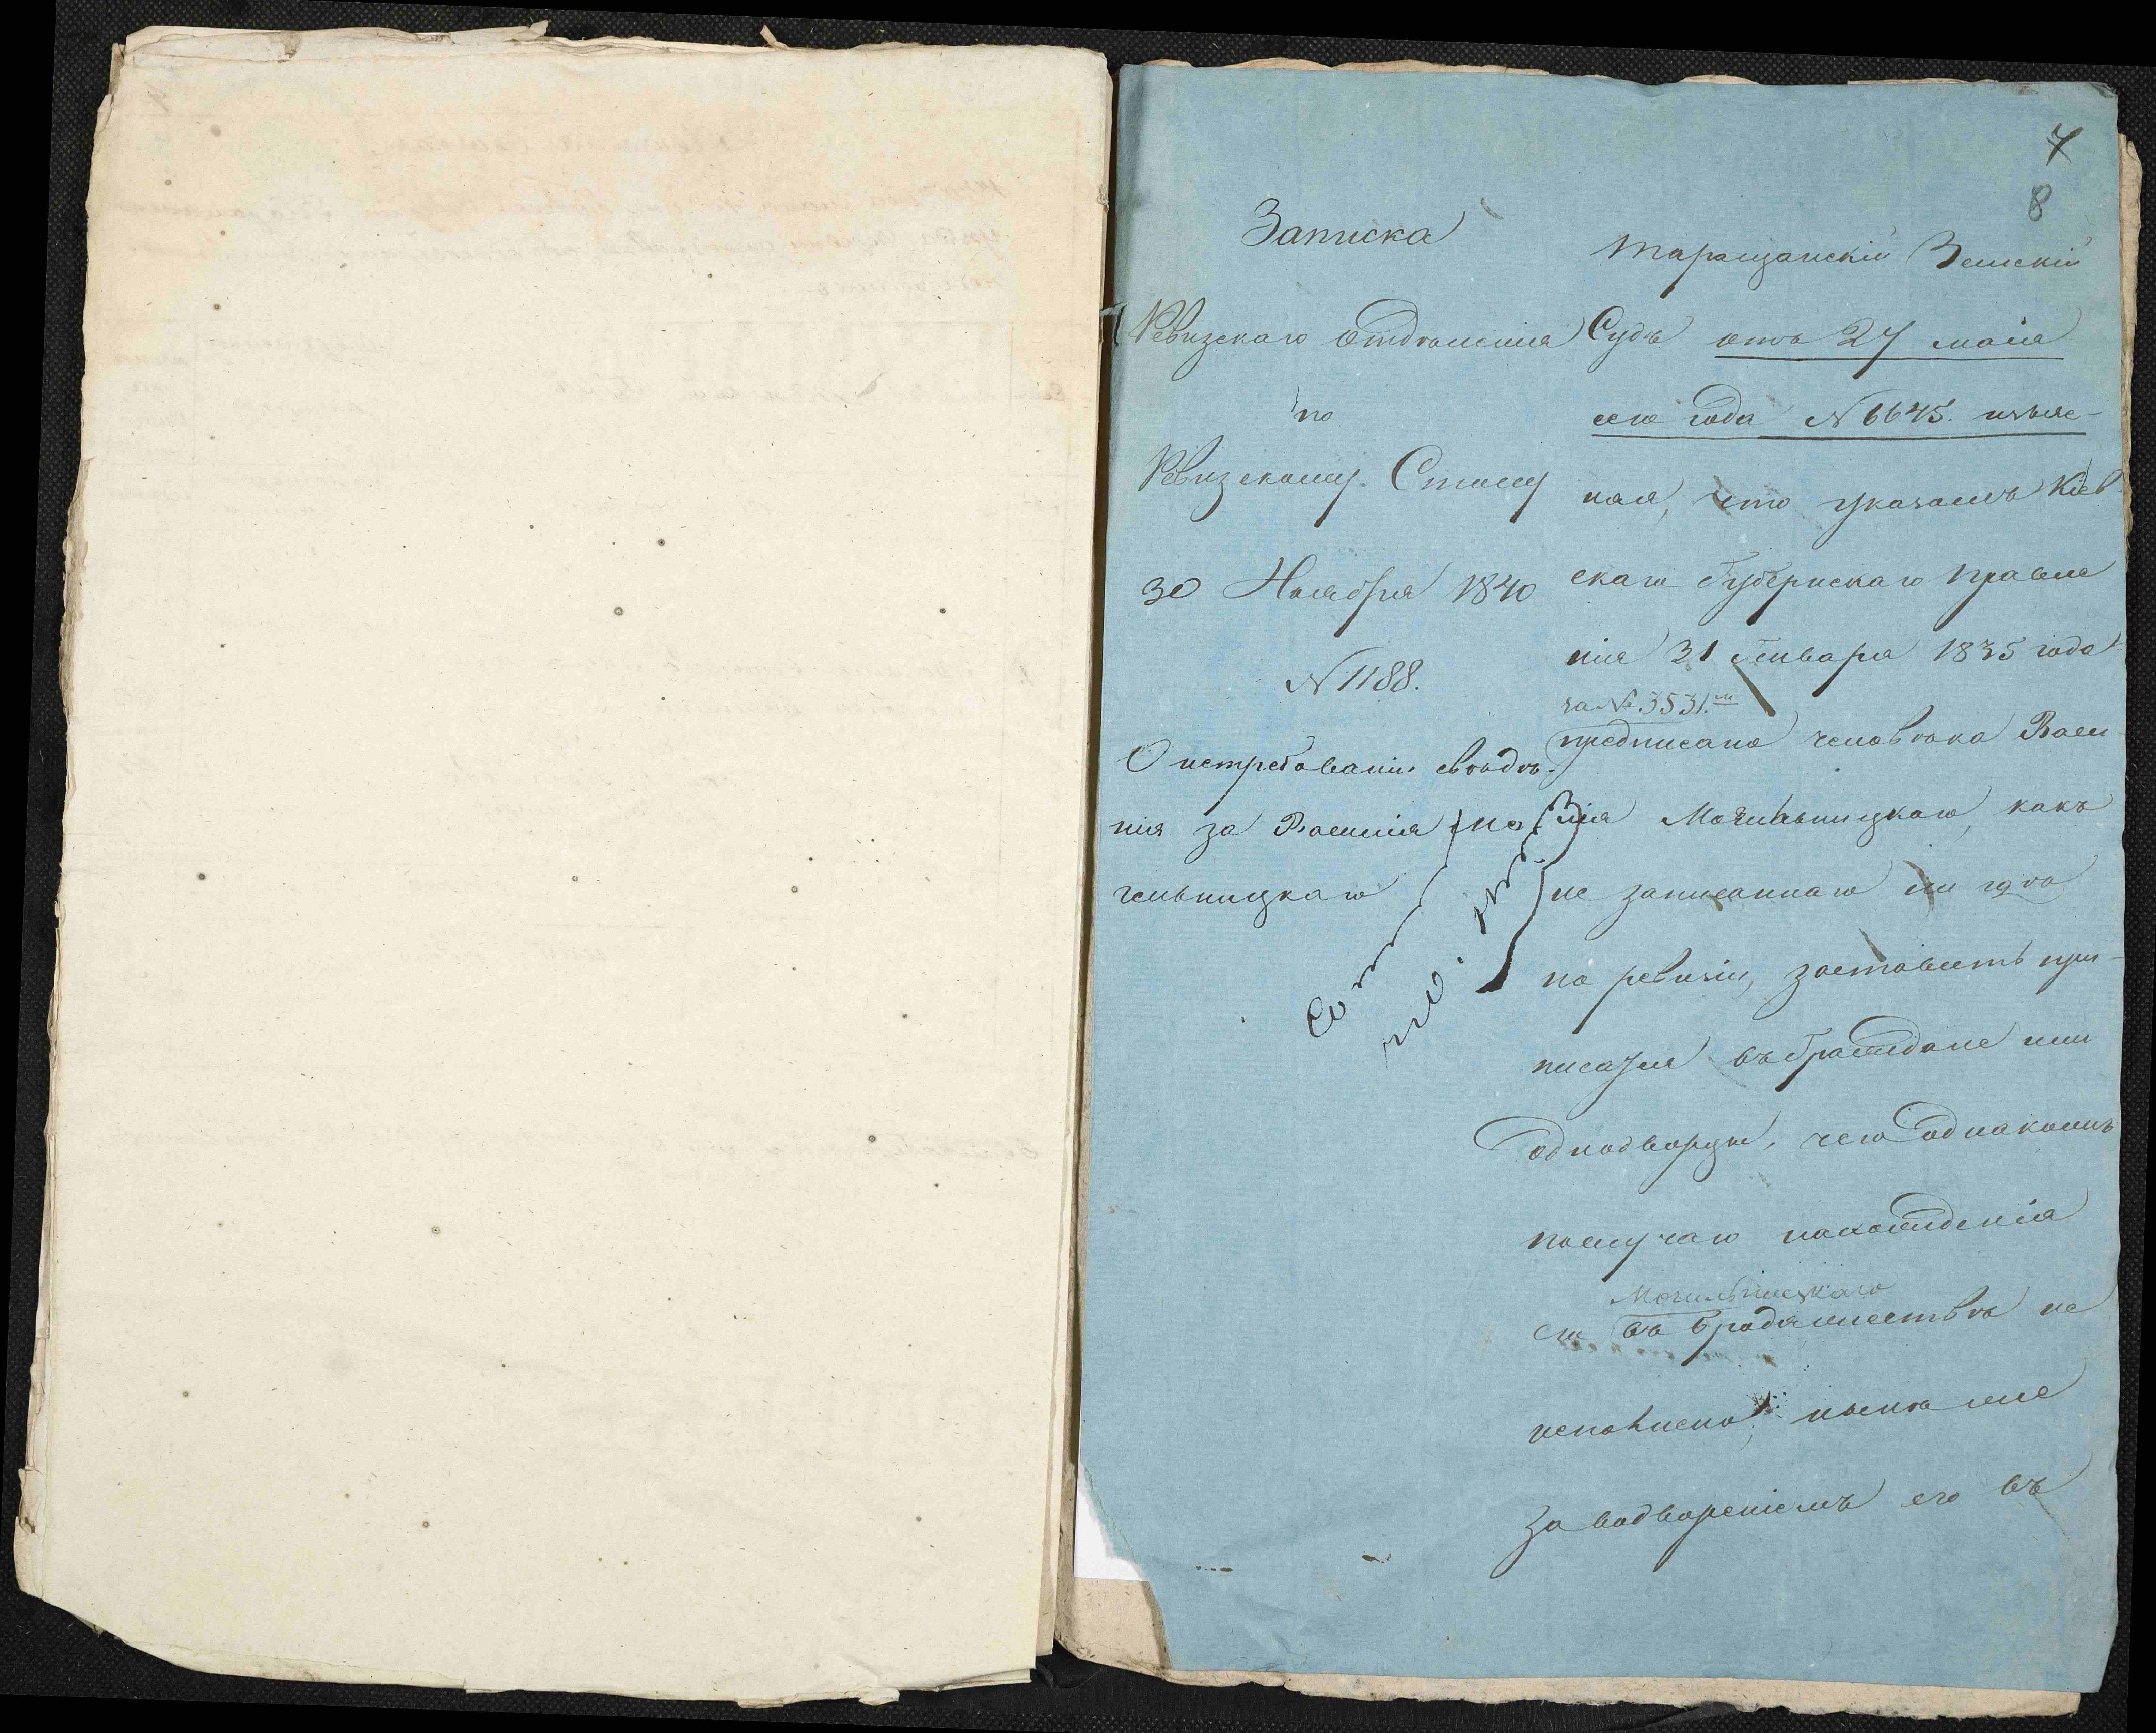 7
8
Записка
Ревизскаго Отдѣленія
по
Ревизскому Столу
30 Ноября 1840
N 1188.
О истребованіи свѣдѣ-
нія за Василія Мо
гильницкаго
Таращанскій Земскій
Судъ отъ 27 маія
сего года N 6645. изъяс-
няя, что указомъ Кіев
скаго Губернскаго Правле
нія 31 Генваря 1835 года
за № 3531.м
предписано человѣка Васи
лія Могильницкаго, какъ
не записаннаго ни гдѣ
по ревизіи, заставить при-
писатся въ Граждане или
однодворцы, чего однакожъ
послучаю нахожденія
Могильницкаго
въ бродяжествѣ не
исполнено, нынѣ же
за водвореніемъ его въ